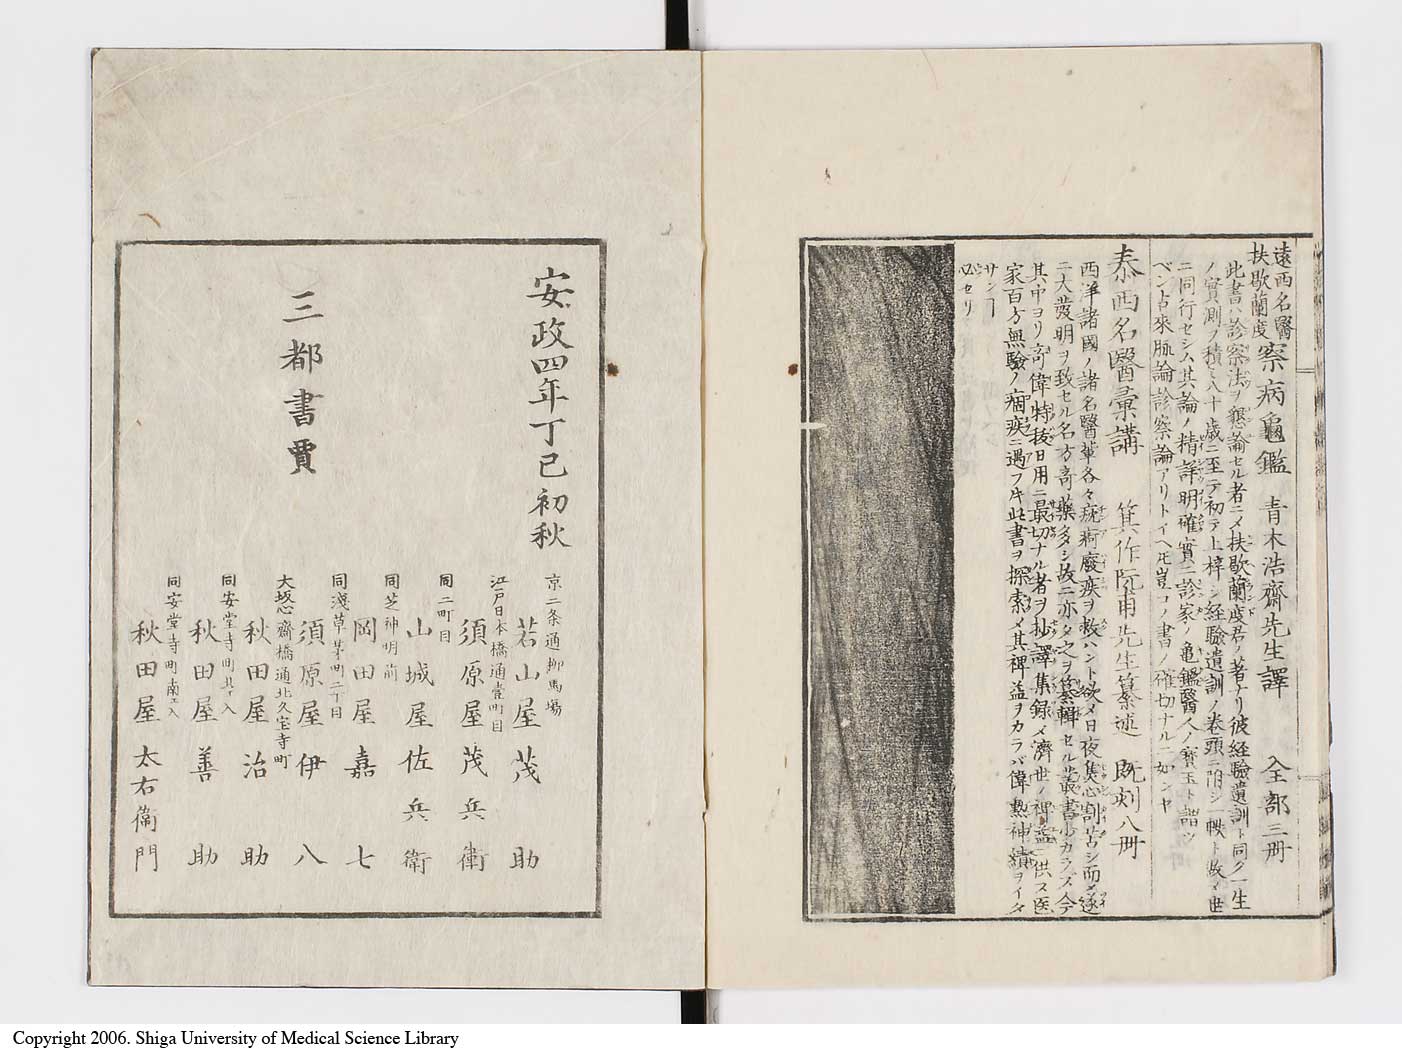 遠西名醫
扶歇蘭度
察病龜鑑　青木浩齋先生譯　全部三册
此書ハ診察法ヲ懇論セル者ニ〆扶歇蘭度君ノ著ナリ彼経驗遺訓ト同ク一生
ノ實測ヲ積ミ八十歳ニ至テ初テ上梓シ経驗遺訓ノ巻頭ニ附シ一帙ト收メ世
ニ同行セシム其論ノ精詳明確實ニ診家ノ亀鑑醫人ノ寳玉ト謂ツ
ベシ古來脉論診察論アリトイヘ𪜈豈コノ書ノ確切ナルニ如ンヤ
泰西名醫彙講　箕作阮甫先生纂述　既刻八冊
西洋諸國ノ諸名醫輩各々疣痾廢疾ヲ救ハント欲〆日夜焦心刻苦シ而〆遂
ニ大發明ヲ致セル名方奇藥多シ故ニ亦タ之ヲ纂輯セル叢書少カラズ今
其中ヨリ奇偉特拔日用ニ最切ナル者ヲ抄譯集録〆濟世ノ裨益ニ供ス医
家百方無驗ノ痼疾ニ遇フ𪜈此書ヲ探索〆其裨益ヲカラバ偉勲神績ヲイタ
サンヿ
必セリ
安政四年丁巳初秋
三都書賈
京二条通柳馬場
若山屋茂助
江戸日本橋通壹町目
須原屋茂兵衛
同二町目
山城屋佐兵衛
同芝神明前
岡田屋嘉七
同淺草茅町二丁目
須原屋伊八
大坂心齋橋通北久宝寺町
秋田屋治助
同安堂寺町北エ入
秋田屋善助
同安堂寺町南エ入
秋田屋太右衞門
Copyright 2006. Shiga University of Medical Science Library